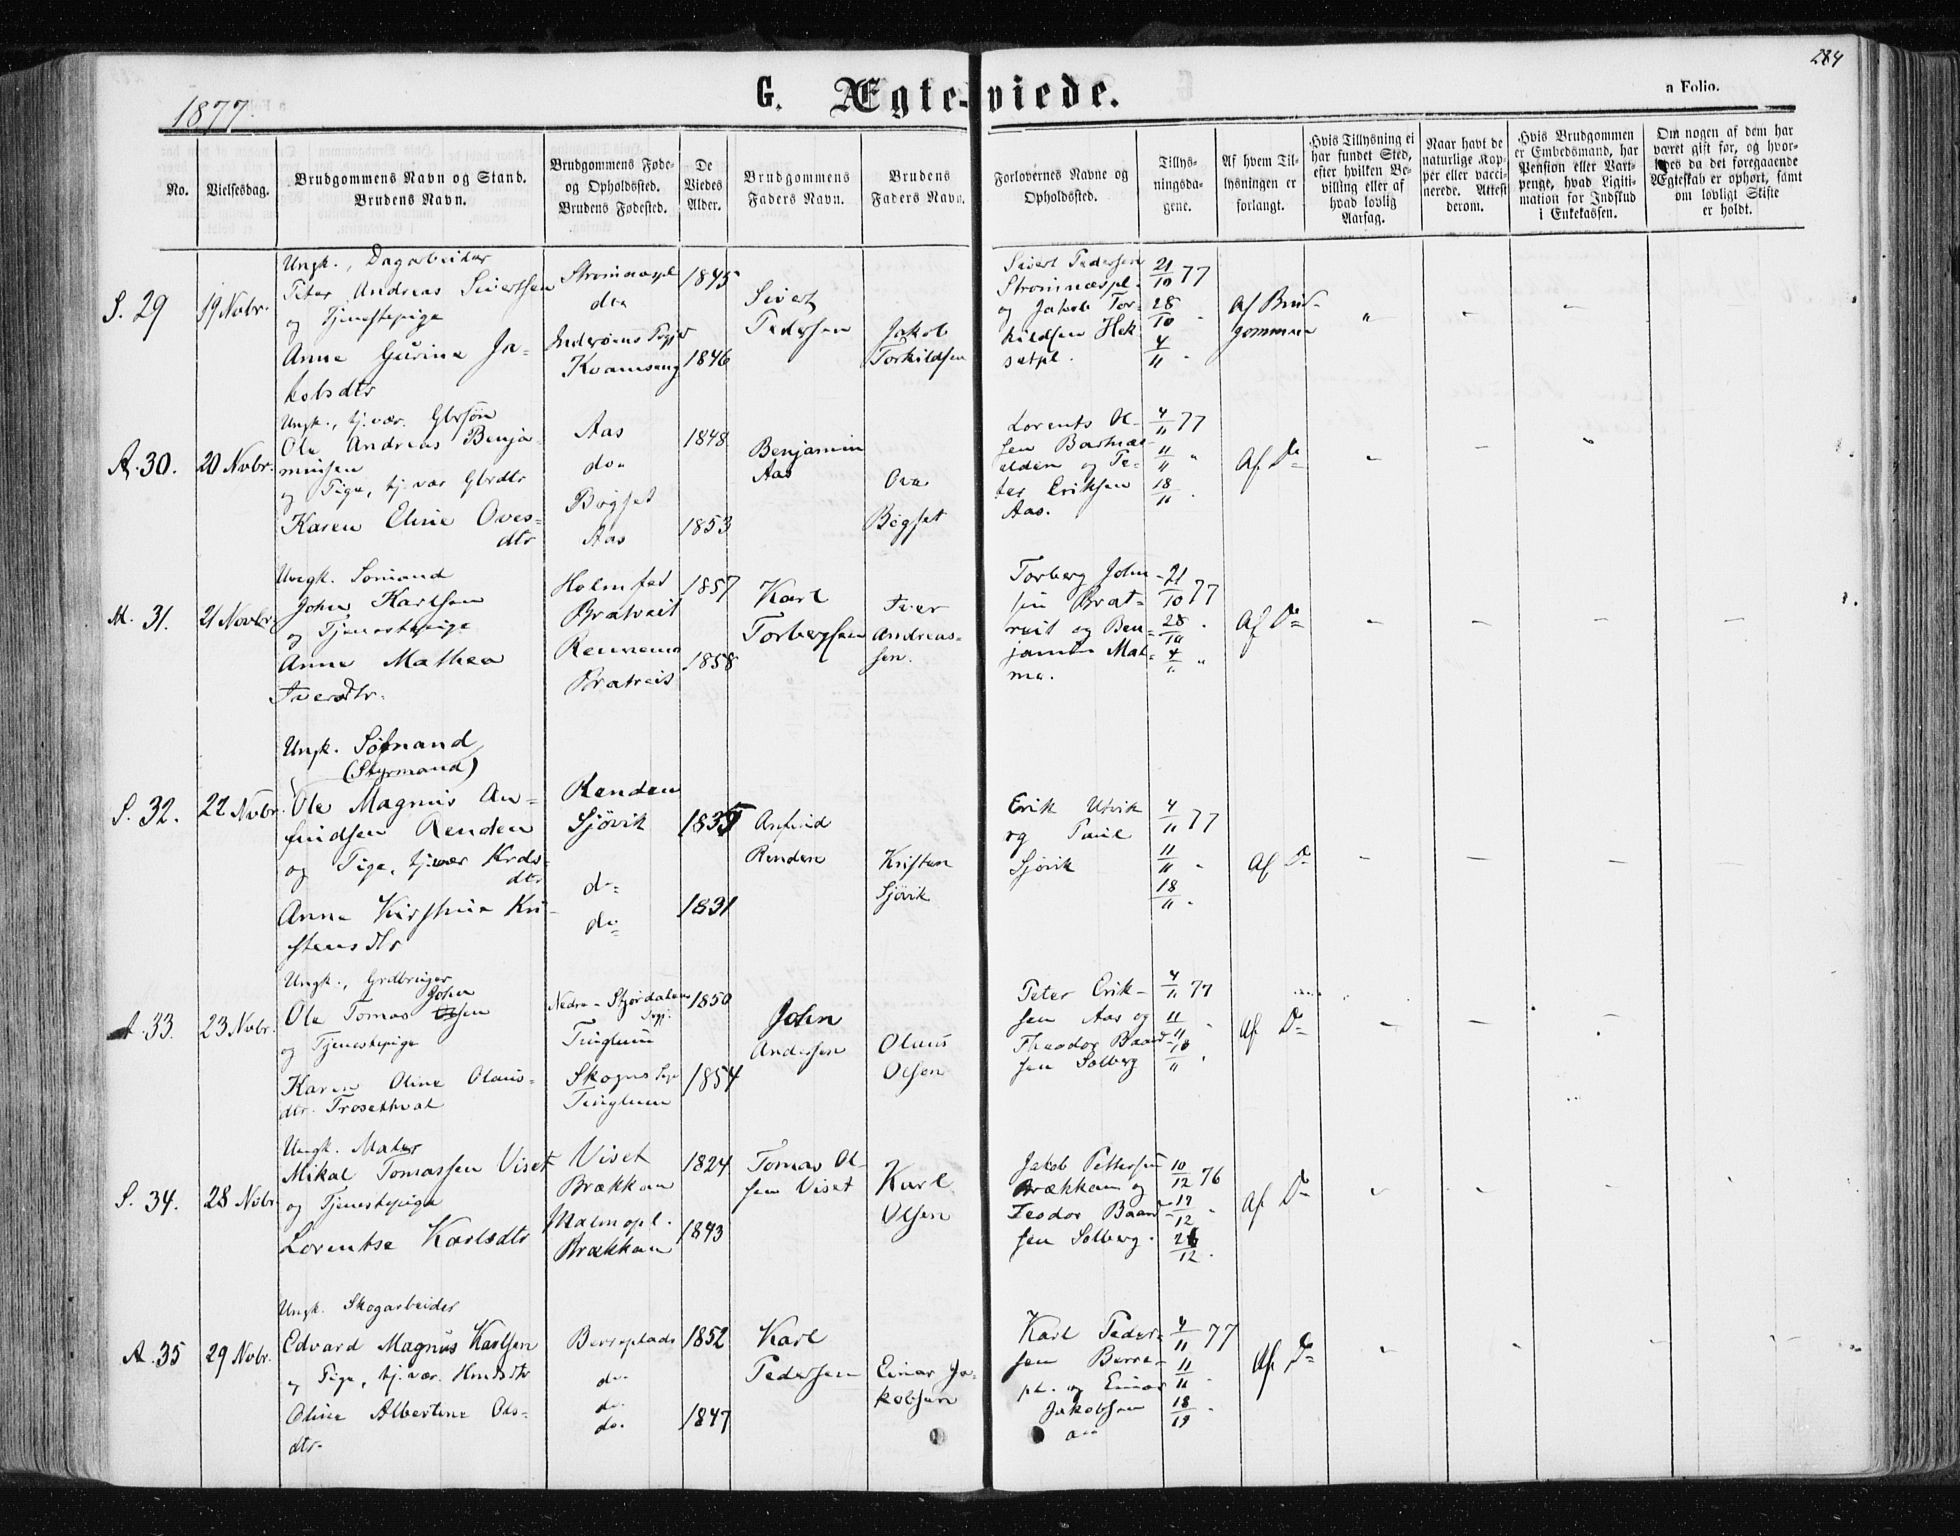 284
G. Ægte-viede.
a Folio.
1877.
No.
Vielsesdag.
Brudgommens Navn og Stand.
Brudens Navn.
Brudgommens Føde-
og Opholdssted.
Brudens Fødested.
De
Viedes
Alder.
Brudgommens
Faders Navn.
Brudens
Faders Navn.
Forlovernes Navne og
Opholdssted.
Tillys-
ningsda-
gene.
Af hvem Til-
lysningen er
forlangt.
Hvis Tillysning ei
har fundet Sted,
efter hvilken Be-
villing eller af
hvad lovlig
Aarsag.
Naar havt de
naturlige Kop-
per eller vacci-
nerede. Attest
derom.
Hvis Brudgommen
er Embedsmand, har
Pension eller Vart-
penge, hvad Ligiti-
mation for Indskud
i Enkekassen.
Om nogen af dem har
været gift før, og hvor-
ledes da det foregaaende
Ægteskab er ophørt, samt
om lovligt Skifte
er holdt.
S. 29
19 Nvbr.
Ungk., Dagarbeider
Peter Andreas Sivertsen
og Tjenestepige
Anne Gurine Ja-
kobsdtr
Strømnæspl
do"
Inderøens Pgjd
Kvamseng
1845
1846
Sivert
Pedersen
Jakob
Torkildsen
Sivert Pedersen
Strømnæspl.
og Jakob Tor-
kildsen Hek-
setpl.
21/10 77
28/10 "
4/11 "
Af Brud-
gommen
A. 30.
20 Nvbr.
Ungk., tj. vær. Gbrsøn
Ole Andreas Benja-
minsen
og Pige, tj. vær Gbrdtr
Karen Eline Oves-
dtr
Aas
do"
Bøgset
Aas
1848
1853
Benjamin
Aas
Ove
Bøgset
Lorents Ol-
sen Bartnæs-
alden og Pe-
ter Eriksen
Aas.
4/11 77
11/11 "
18/11 "
Af Do
M. 31.
21 Novbr.
Ungk. Sømand
John Karlsen
og Tjenestepige
Anne Mathea
Iversdtr.
Holmset
Bratreit
Rennemo
Bratreit
1857
1858
Karl
Torbergsen
Iver
Andreas-
sen.
Torberg John-
sen Brat-
reit og Ben-
jamin Mal-
mo.
21/10 77
28/10 "
4/11 "
Af Do
S. 32.
22 Nvbr.
Ungk. Sømand
(Styrmand)
Ole Magnus An-
findsen Renden
og Pige, tj. vær Krds-
dtr
Anne Kirstine Kri-
stensdtr
Renden
Sjøvik
do"
do"
1835
1831
Anfind
Renden
Kristen
Sjøvik
Erik Utvik
og Paul
Sjøvik
4/11 77
11/11 "
18/11 "
Af Do
A. 33.
23 Nvbr.
Ungk., Grdbruger
Ole Tomas Johnsen
og Tjenestepige
Karen Oline Olaus-
dtr. Trosethval
Nedre-Stjørdalens
Pgj.
Tinglum
Skogns Pgj
Tinglum
1850
1854
John
Andersen
Olaus
Olsen
Peter Erik-
sen Aas og
Theodor Baard-
sen Solberg
4/11 77
11/11 "
18/11 "
Af Do
S. 34.
28 Nvbr.
Ungk. Maler
Mikal Tomassen Viset
og Tjenestepige
Lorentse Karlsdtr
Viset
Brækkan
Malmopl.
Brækkan
1824
1843
Tomas Ol-
sen Viset
Karl
Olsen
Jakob Pettersen
Brækkan og
Teodor Baard-
sen Solberg.
10/12 76
17/12 "
26/12 "
Af Do
A. 35
29 Nvbr.
Ungk. Skogarbeider
Edvard Magnus Karlsen
og Pige, tj. vær. Hmdsdtr
Oline Albertine Ols-
dtr.
Berreplads
do.
do.
do.
1852
1847
Karl
Pedersen
Einar Ja-
kobsen
Karl Peder-
sen Berre-
pl. og Einar
Jakobsen
4/11 77
11/11 "
18/11 "
Af Do